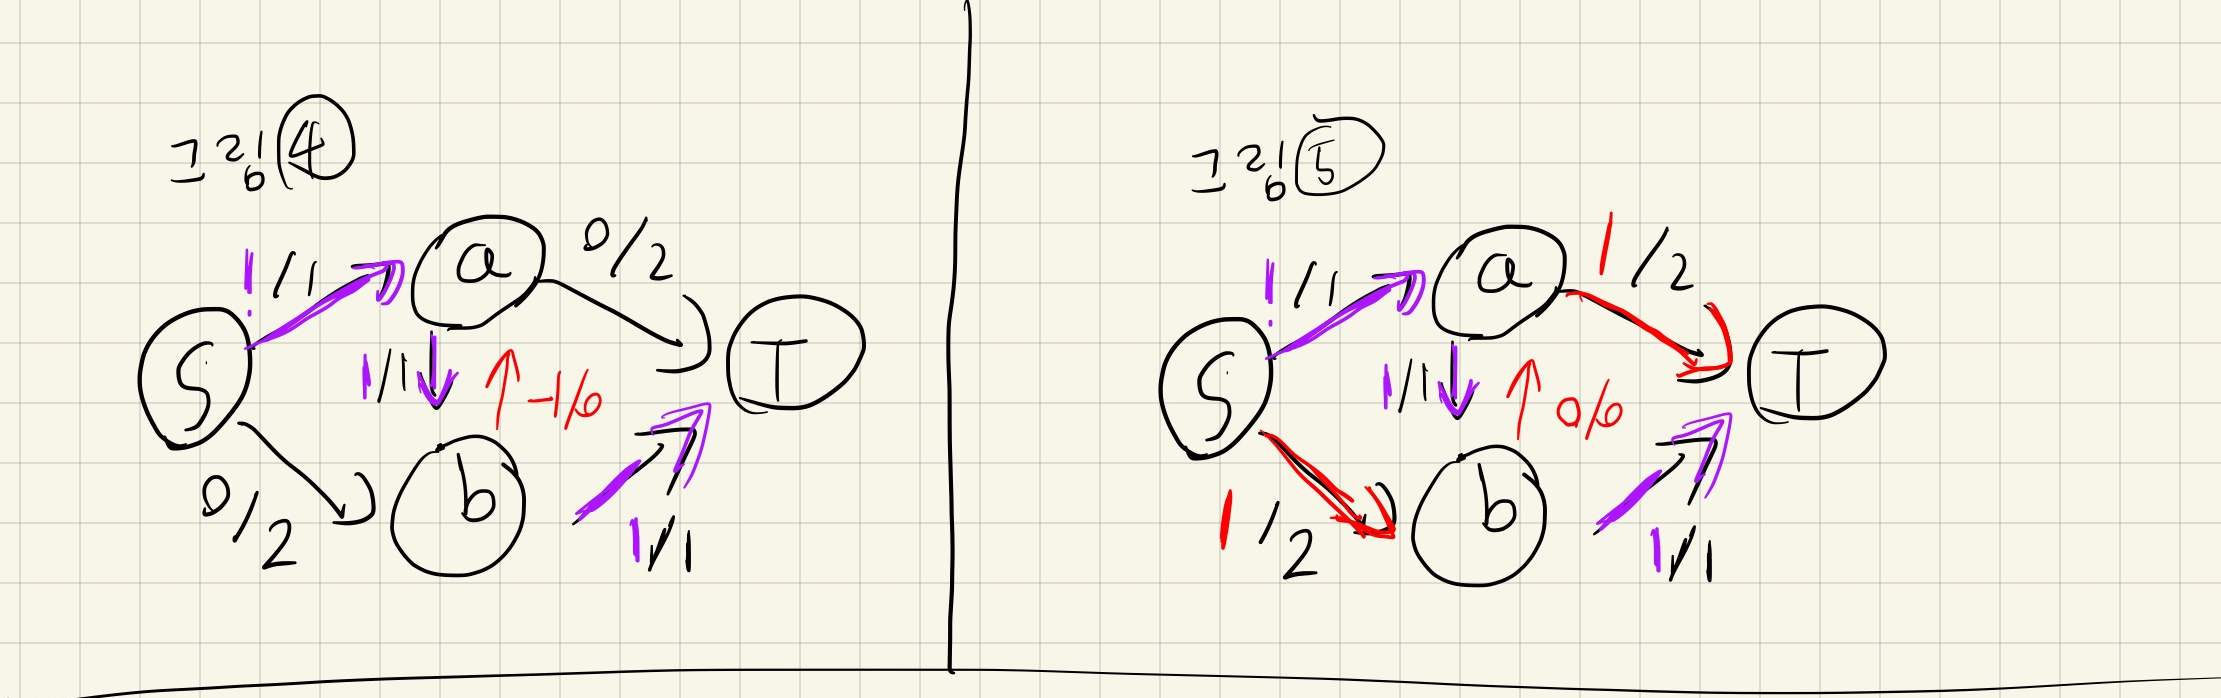 그림 4
1/1
a
0/2
S
1/1
-1/0
T
0/2
b
1/1
그림 5
1/1
a
1/2
S
1/1
0/0
T
1/2
b
1/1